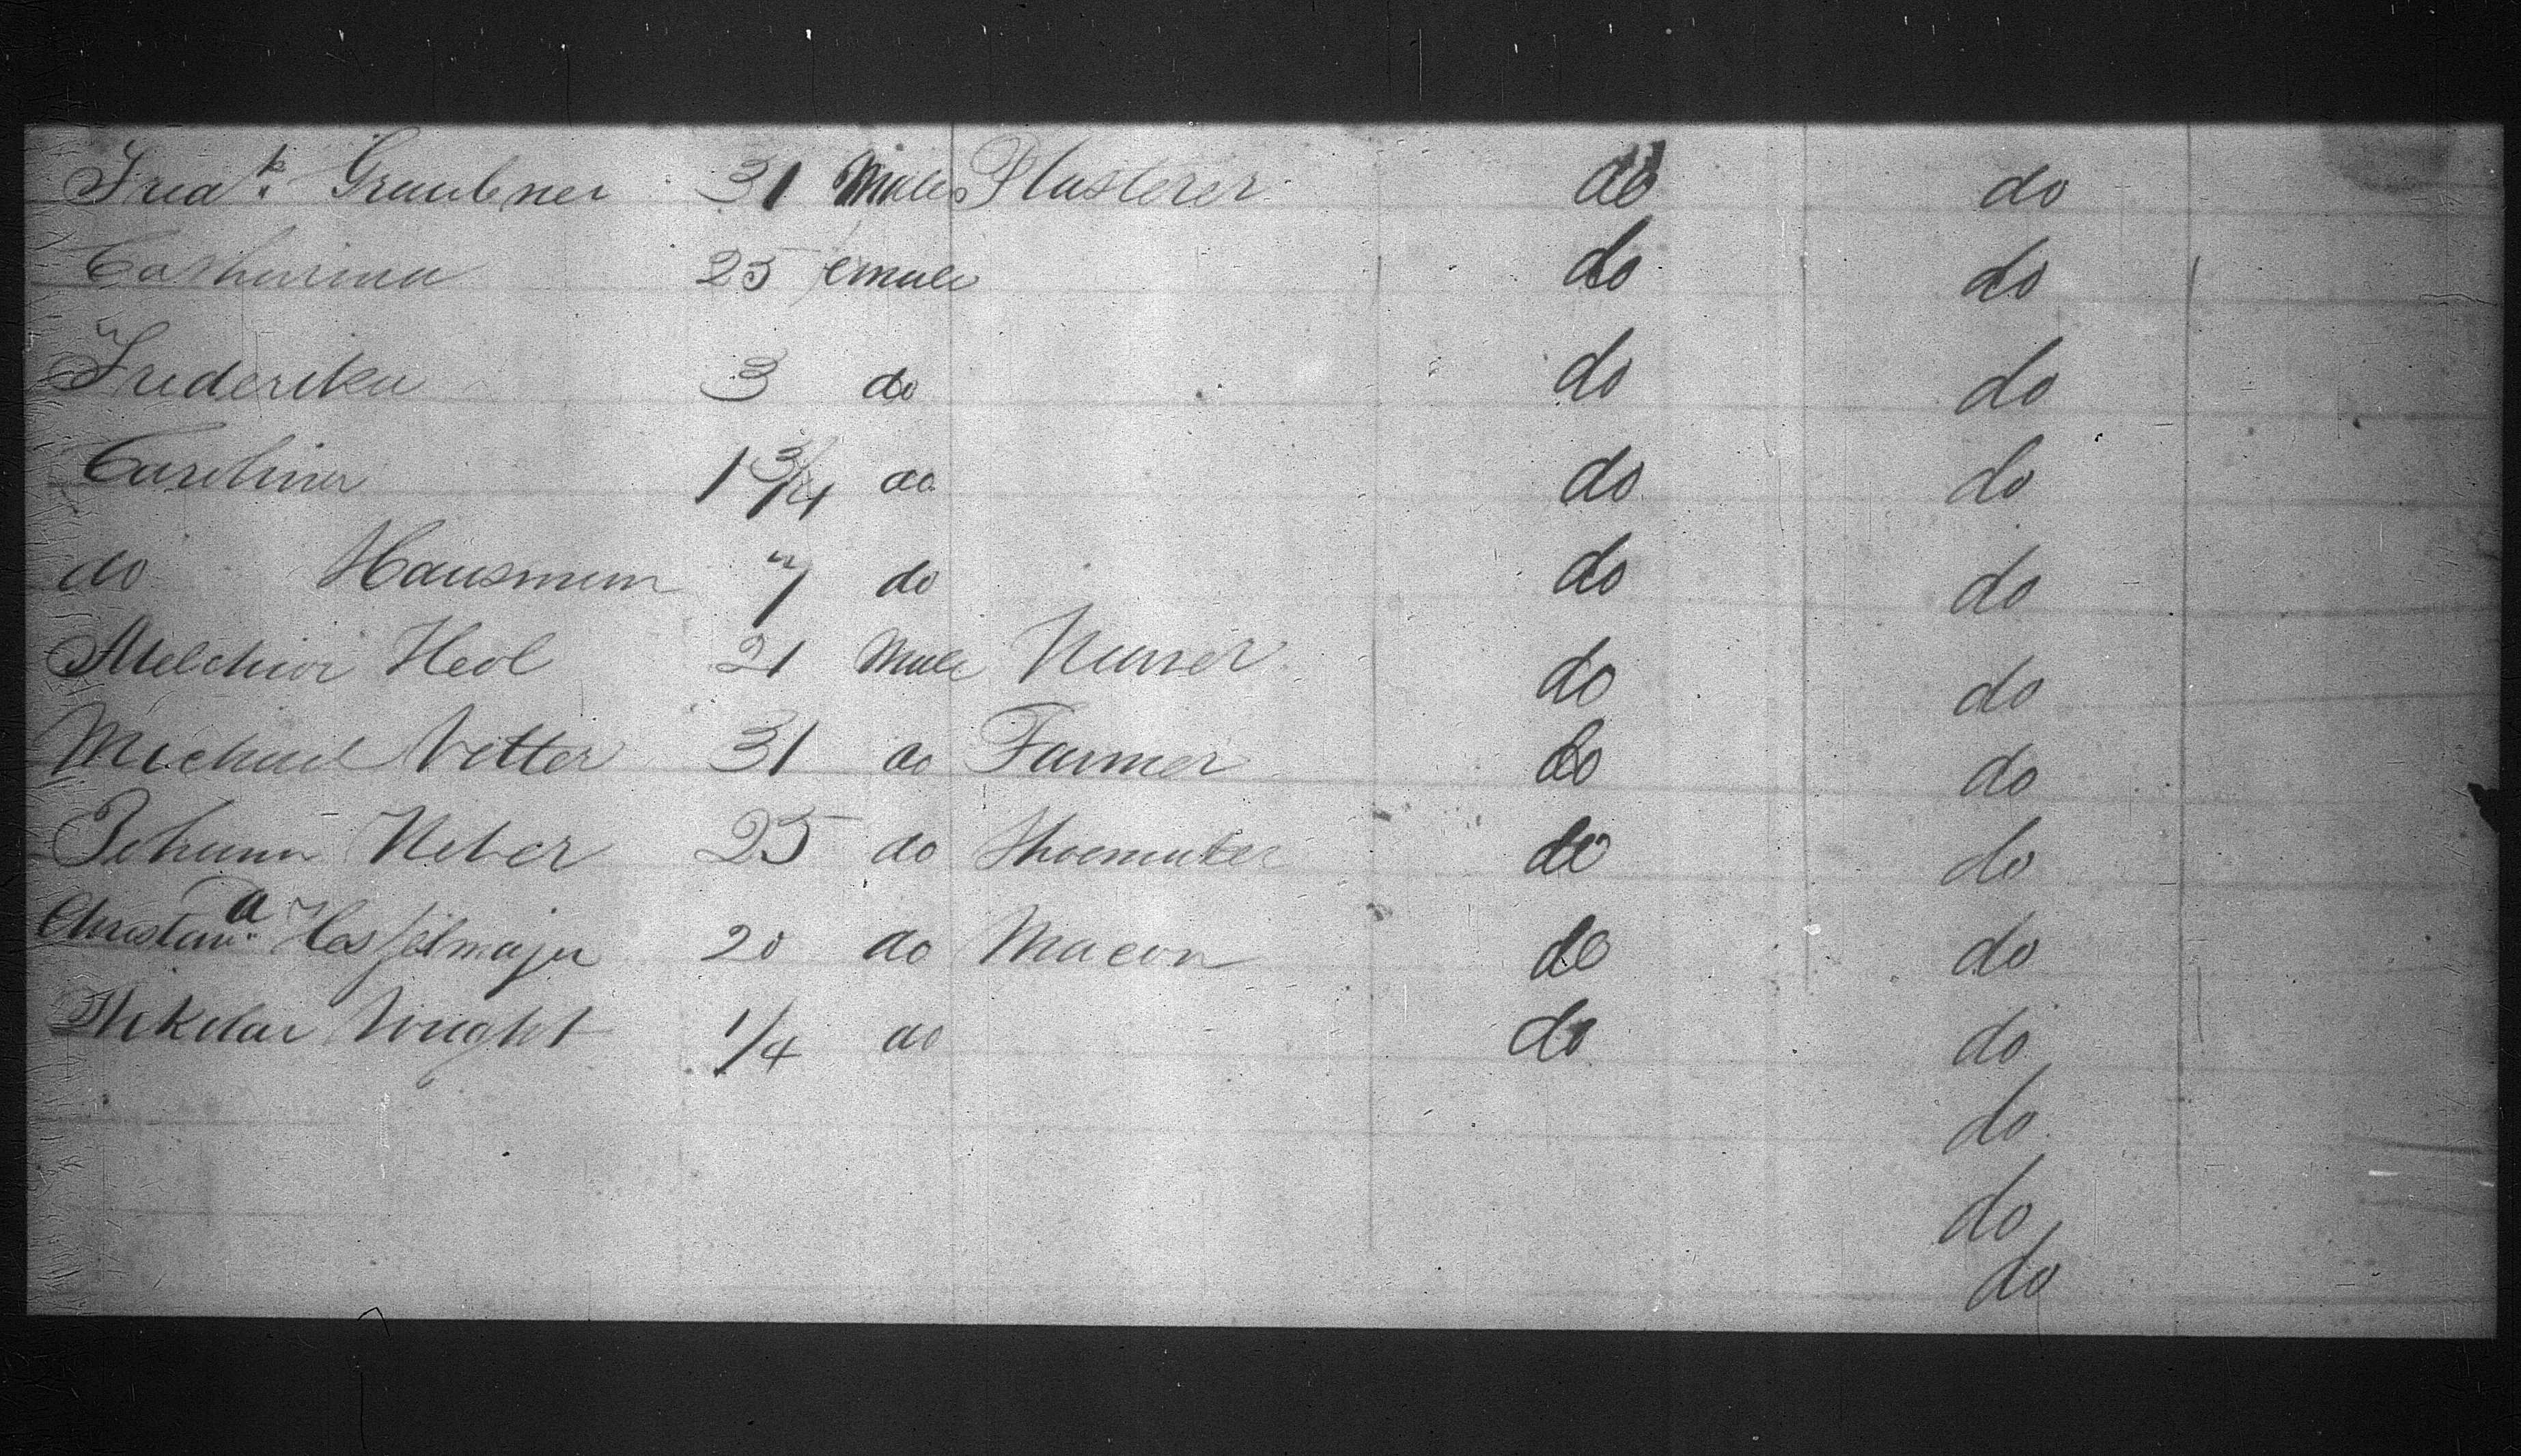 Fredk. Graubner 31 Male Plasterer do do
Catharina 25 female do do
Frederika 3 do do do
Carolina 1 3/4 do do do
do Hausmann 7 do do do
Melchior Heol 21 Male do do
Michael Vetter 31 do Farmer do do
Johann Weber 25 do Shoemaker do do
20 do Macon do do
Nikolai Voight 1/4 do do do
do
do
do